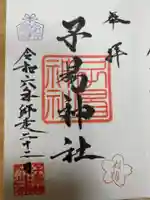 奉拝
子易神社
令和六年師走二十二日